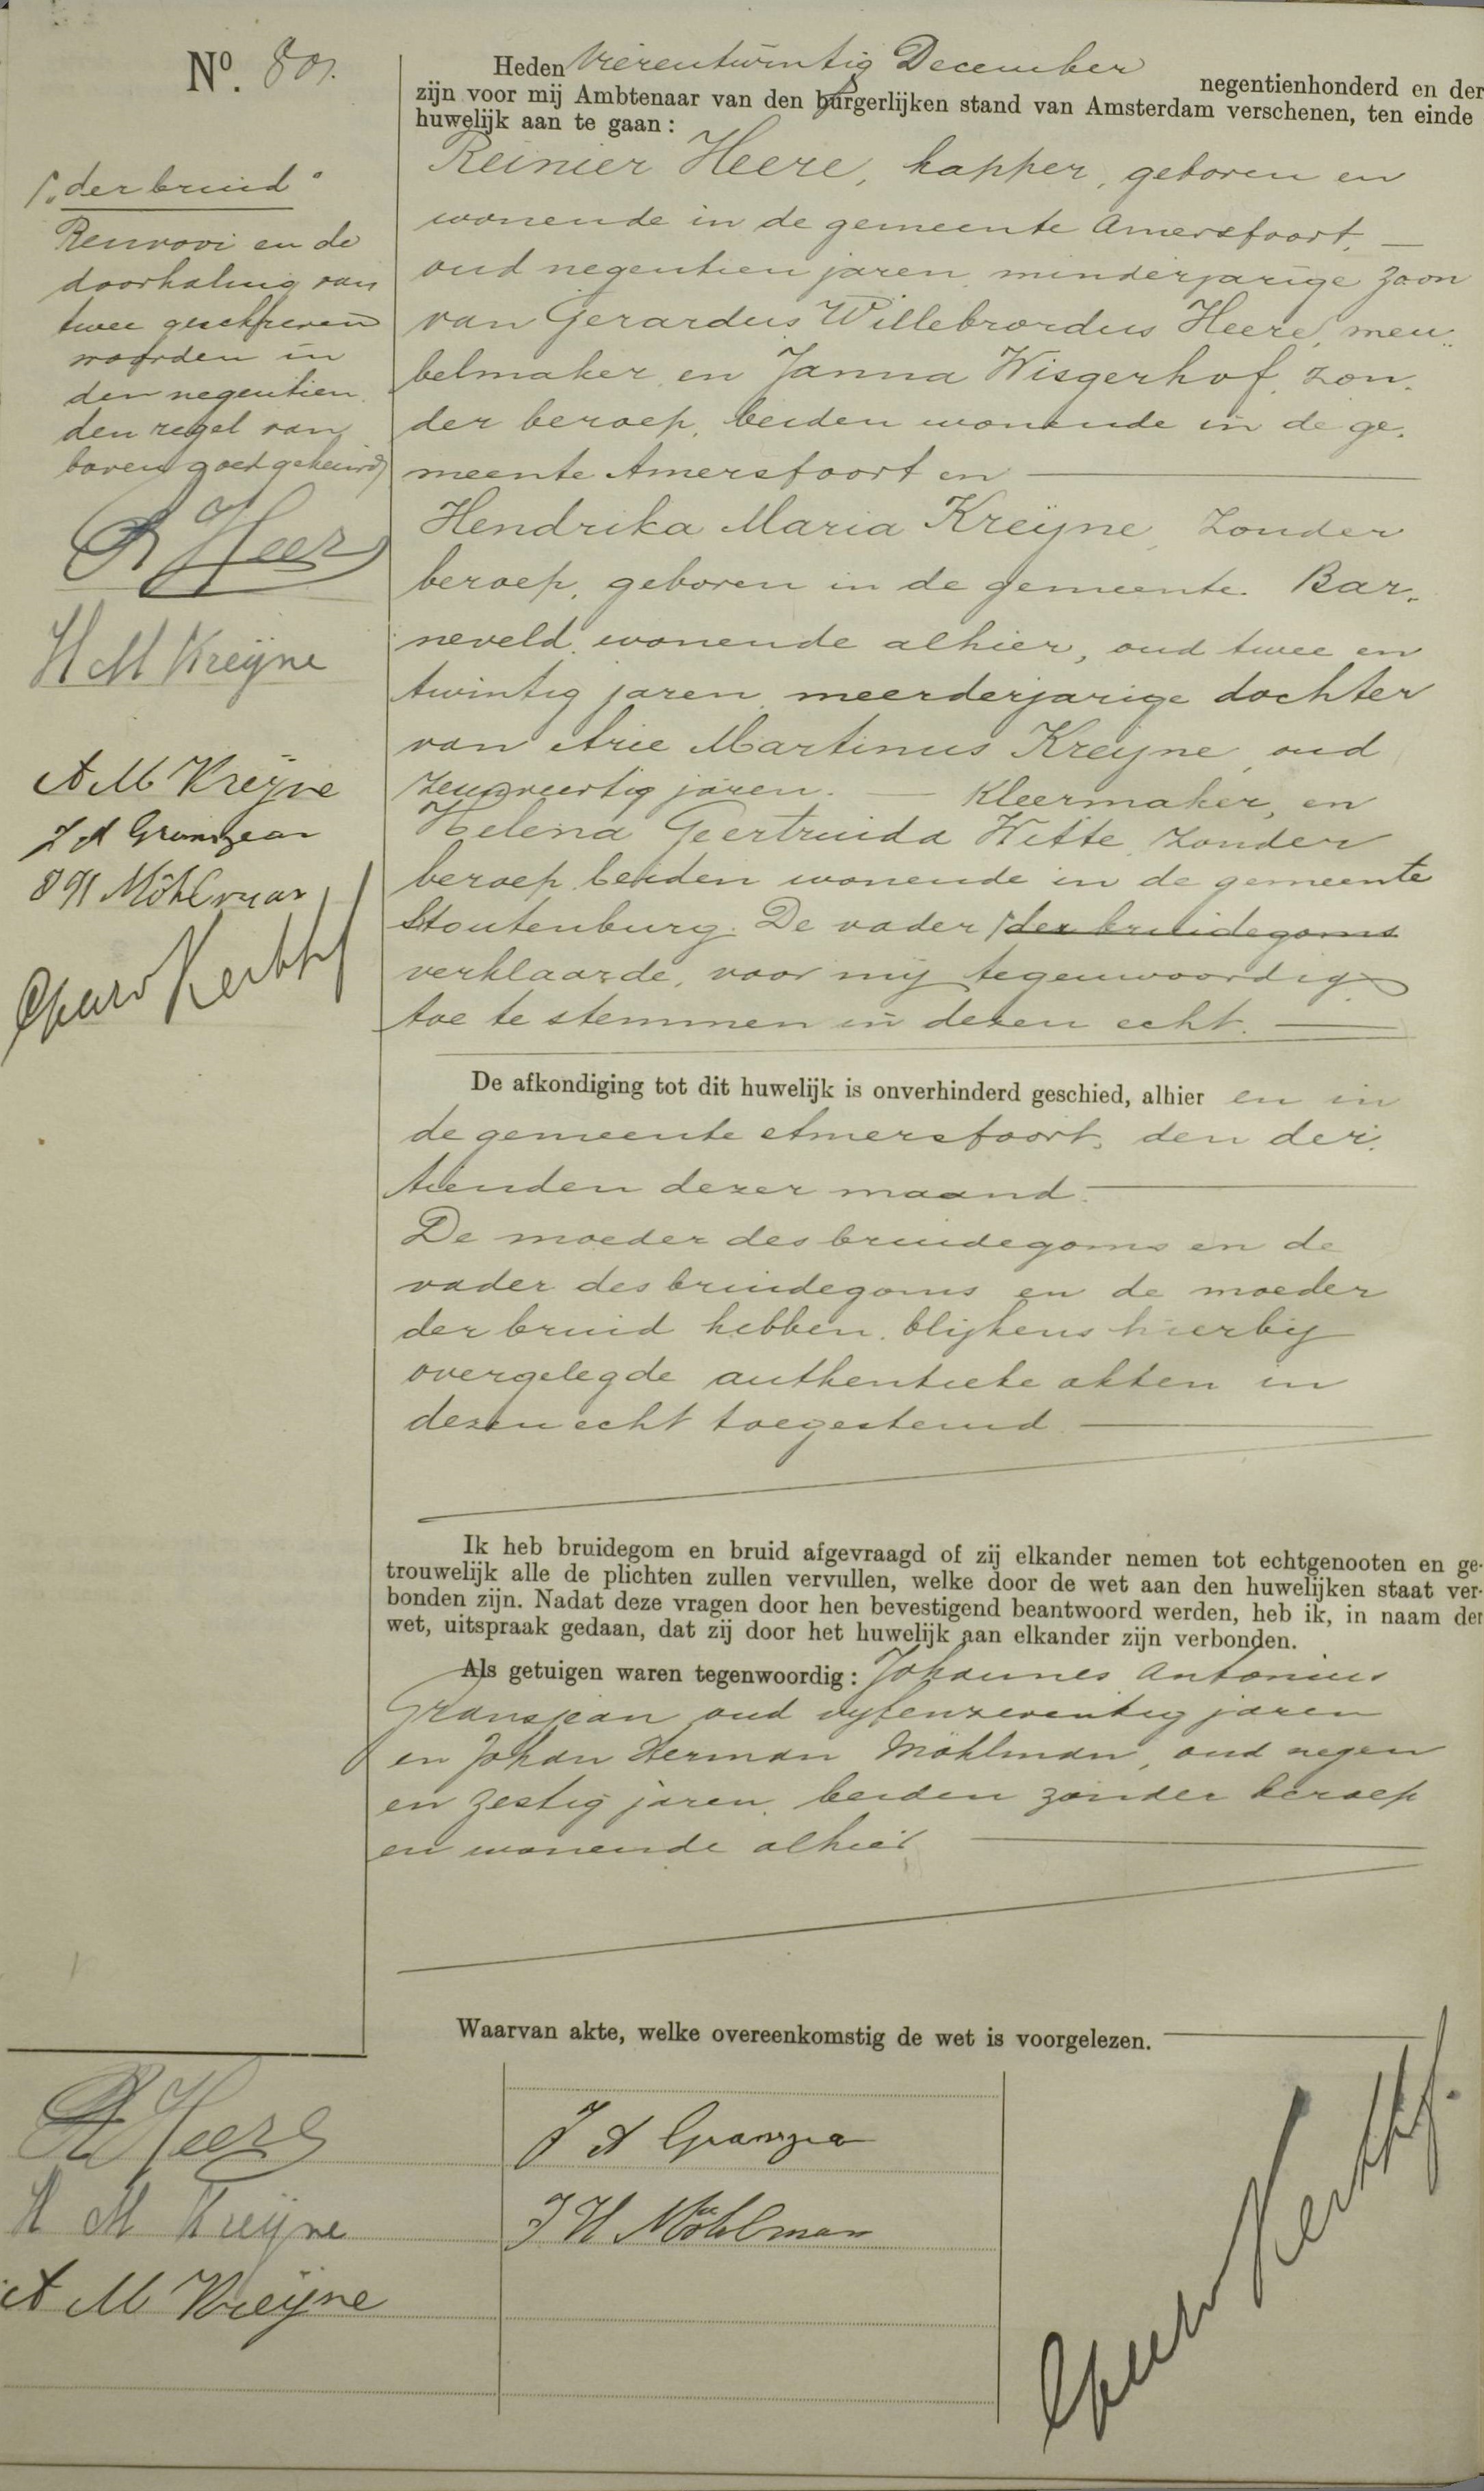 Nº. 801.
Heden Vierentwintig December negentienhonderd en der
zijn voor mij Ambtenaar van den burgerlijken stand van Amsterdam verschenen, ten einde
huwelijk aan te gaan:
Reinier Heere, kapper, geboren en
wonende in de gemeente Amersfoort, —
oud negentien jaren, minderjarige zoon
van Gerardus Willebrordus Heere, meu-
belmaker, en Janna Wisgerhof, zon-
der beroep, beiden wonende in de ge-
meente Amersfoort en
Hendrika Maria Kreijne, zonder
beroep, geboren in de gemeente Bar-
neveld, wonende alhier, oud twee en
twintig jaren, meerderjarige dochter
van Arie Martinus Kreijne, oud
jaren. — Kleermaker, en
Helena Geertruida Witte, zonder
beroep, beiden wonende in de gemeente
Stoutenburg. De vader des bruidegoms
verklaarde, voor mij tegenwoordig
toe te stemmen in dezen echt.
"der bruid"
Renvooi en de
doorhaling van
twee geschreven
woorden in
den negentien-
den regel van
boven goedgekeurd
R Heere
H M Kreijne
A M Kreijne
J A Gransjean
J H Möhlman
De afkondiging tot dit huwelijk is onverhinderd geschied, alhier en in
de gemeente Amersfoort, den der-
tienden dezer maand.
De moeder des bruidegoms en de
vader des bruidegoms en de moeder
der bruid hebben, blijkens hierbij
overgelegde authentieke akten in
dezen echt toegestemd
Ik heb bruidegom en bruid afgevraagd of zij elkander nemen tot echtgenooten en ge-
trouwelijk alle de plichten zullen vervullen, welke door de wet aan den huwelijken staat ver-
bonden zijn. Nadat deze vragen door hen bevestigend beantwoord werden, heb ik, in naam der
wet, uitspraak gedaan, dat zij door het huwelijk aan elkander zijn verbonden.
Als getuigen waren tegenwoordig: Johannes Antonius
Gransjean oud vijfenzeventig jaren
en Johan Herman Möhlman, oud negen
en zestig jaren, beiden zonder beroep
en wonende alhier
Waarvan akte, welke overeenkomstig de wet is voorgelezen.
R Heere
H M Kreijne
A M Kreijne
J A Gransjea
J H Möhlman